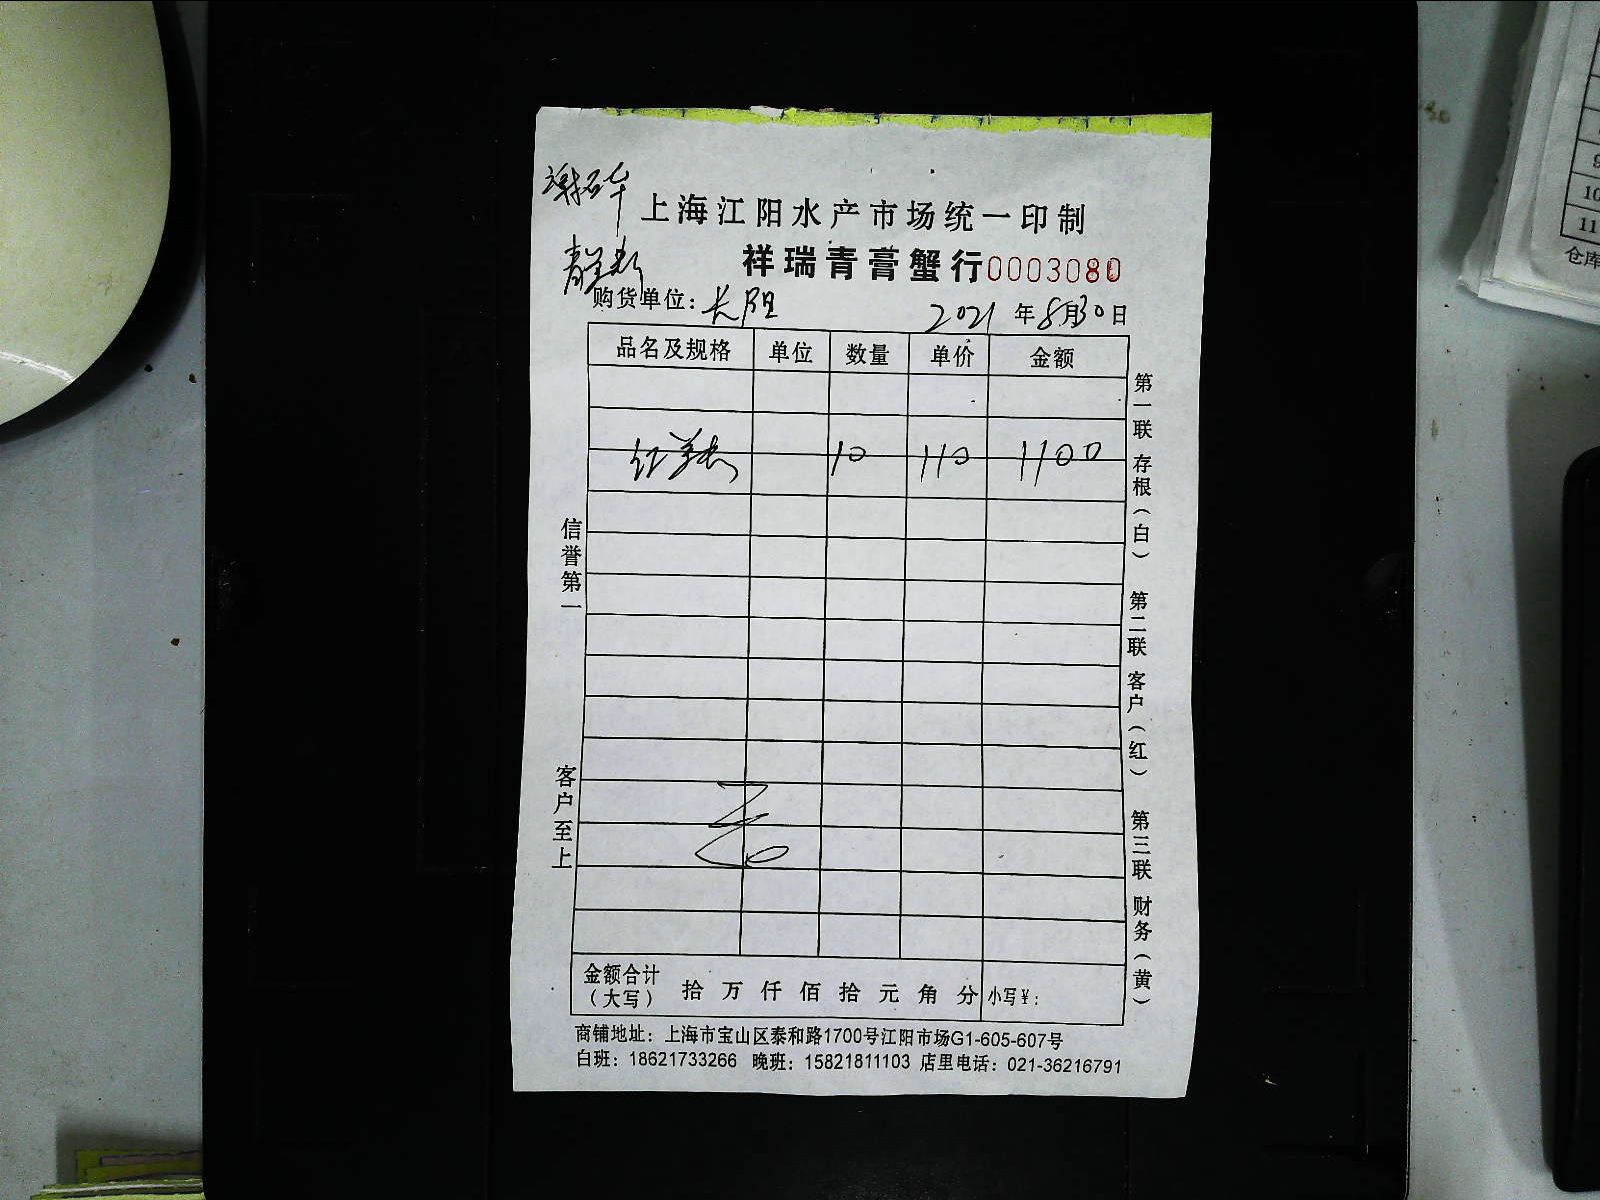 上海江阳水产市场统一印制
祥瑞青膏蟹行0003080
购货单位：长阳 2021年8月30日
品名及规格 单位 数量 单价 金额
红 10 110 1100
信誉第一
客户至上
第一联 存根（白） 第二联 客户（红） 第三联 财务（黄）
金额合计（大写） 拾 万 仟 佰 拾 元 角 分 小写￥：
商铺地址：上海市宝山区泰和路1700号江阳市场G1-605-607号
白班：18621733266 晚班：15821811103 店里电话：021-36216791
10
11
仓库